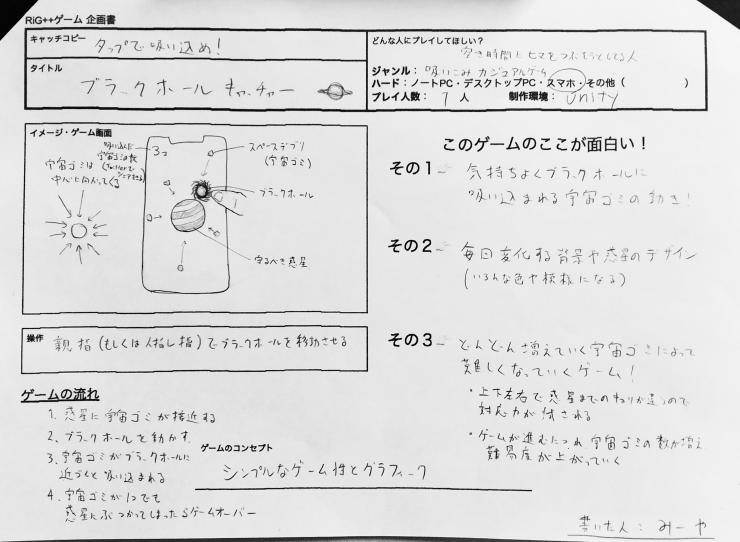 RiG++ゲーム 企画書
キャッチコピー
タップで吸い込め!
タイトル
ブラックホールキャッチャー
どんな人にプレイしてほしい?
空き時間にヒマをつぶそうとしてる人
ジャンル: 吸いこみカジュアルゲーム
ハード:ノートPC・デスクトップPC・スマホ・その他( )
プレイ人数: 1 人 制作環境: Unity
イメージ・ゲーム画面
吸い込んだ
宇宙ゴミの数
宇宙ゴミは
中心に向かってくる
3コ
スペースデブリ
(宇宙ゴミ)
ブラックホール
守るべき惑星
操作
親指(もしくは人指し指)でブラックホールを移動させる
ゲームの流れ
1. 惑星に宇宙ゴミが接近する
2. ブラックホールを動かす
3. 宇宙ゴミがブラックホールに
近づくと吸い込まれる
4. 宇宙ゴミが1つでも
惑星にぶつかってしまったらゲームオーバー
ゲームのコンセプト
シンプルなゲーム性とグラフィーク
このゲームのここが面白い!
その1
気持ちよくブラックホールに
吸い込まれる宇宙ゴミの動き!
その2
毎回変化する背景や惑星のデザイン
(いろんな色や模様になる)
その3
どんどん増えていく宇宙ゴミによって
難しくなっていくゲーム!
・上下左右で惑星までのきょりが違うので
対応力が試される
・ゲームが進むにつれ宇宙ゴミの数が増え
難易度が上がっていく
書いた人: みーや